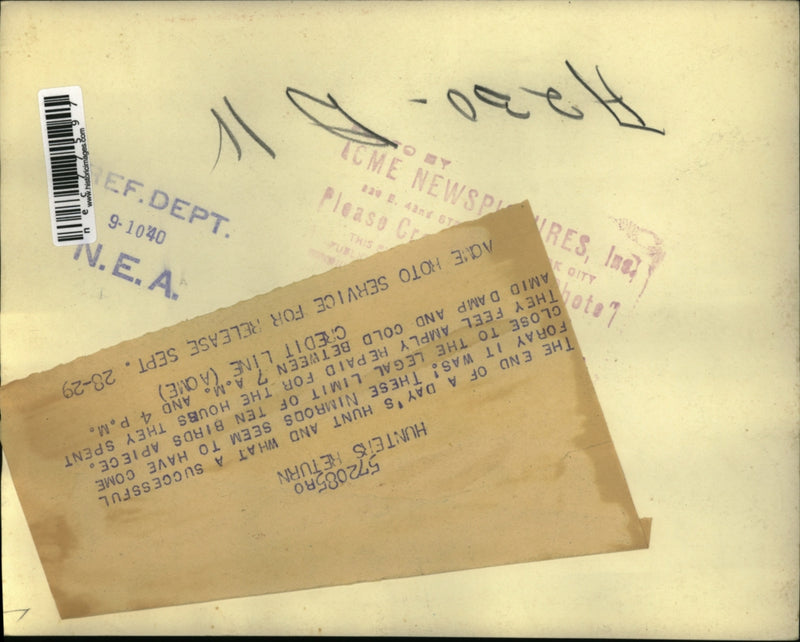 REF. DEPT.
9-1040
N.E.A.
www.historicimages.com
BY
ACME NEWSPICTURES, Inc.
220 E. 42ND ST
Please Cr
THIS P
CITY
Photo"
572085RO
HUNTERS RETURN
THE END OF A DAY'S HUNT AND A SUCCESSFUL
FORAY IT WAS! THESE NIMRODS SEEM TO HAVE COME
CLOSE TO THE LEGAL LIMIT OF TEN BIRDS APIECE.
THEY FEEL AMPLY REPAID FOR THE HOURS THEY SPENT
AMID DAMP AND COLD BETWEEN 7 A.M. AND 4 P.M.
CREDIT LINE (ACME)
ACME ROTO SERVICE FOR RELEASE SEPT. 28-29